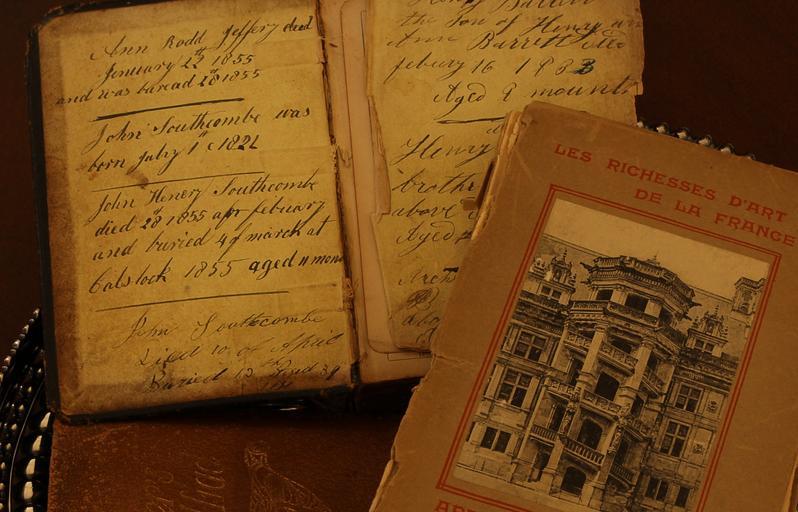 Ann Rodd Jeffery died
January 22th 1855
and was buread 28th 1855
John Southcombe was
born July 1st 1821
John Henery Southcombe
died 28 1855 apr febuary
and buried 4 of march at
Calstock 1855 aged 11 mon
John Southcombe
Died 10 of April
Buried 13
Henry Barrett
the Son of Henry an
Ann Barrett died
febury 16 1833
Aged 9 mounth
Henry
brothe
above
Aged
LES RICHESSES D'ART
DE LA FRANCE